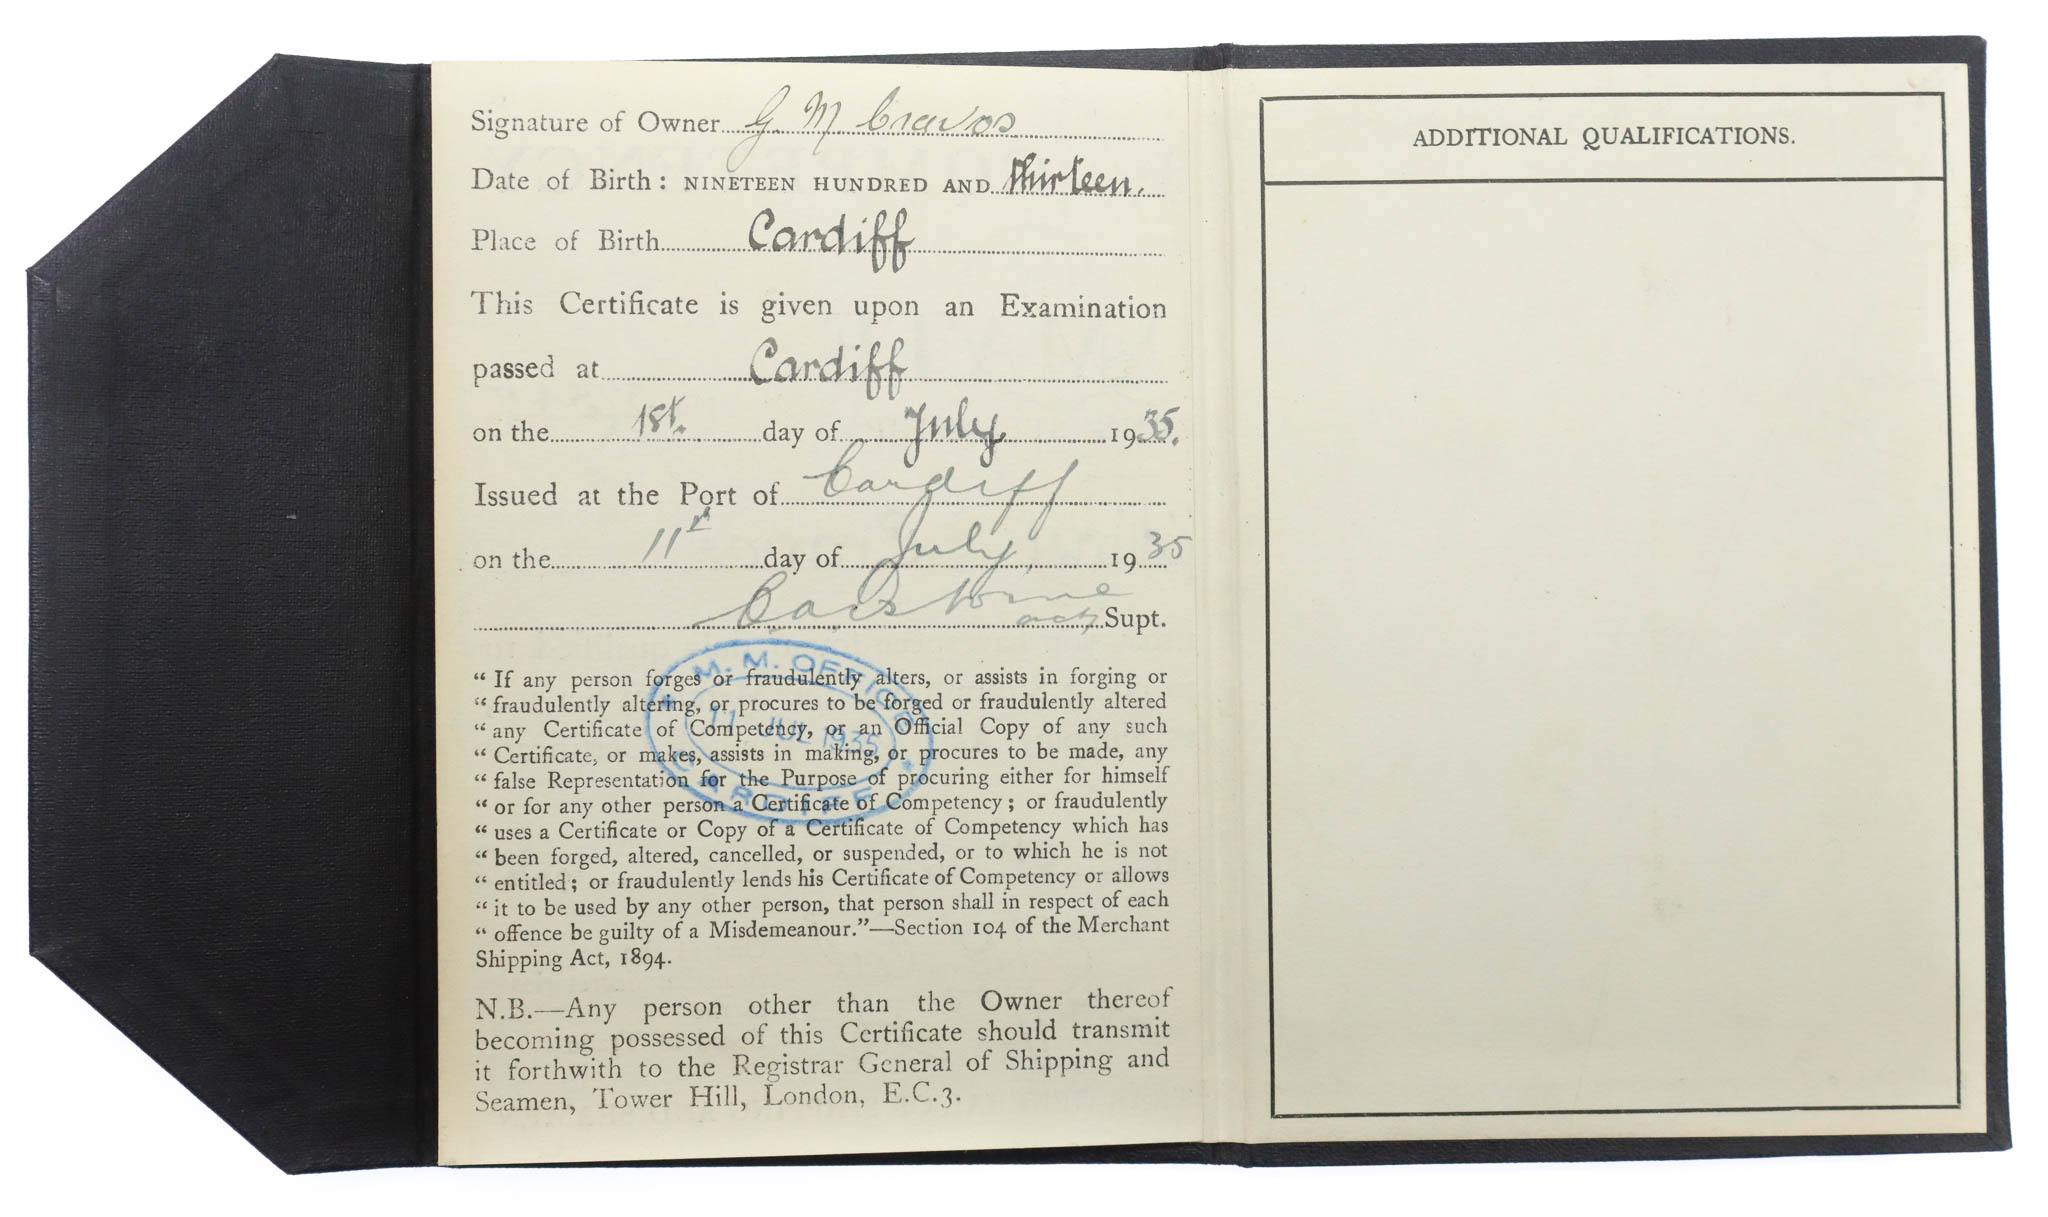 Signature of Owner G. M Cravos
Date of Birth: NINETEEN HUNDRED AND thirteen.
Place of Birth Cardiff
This Certificate is given upon an Examination
passed at Cardiff
on the 1st. day of July 1935.
Issued at the Port of Cardiff
on the 11th day of July, 1935
actg Supt.
M. M. OFFICE
11 JUL 1935
CARDIFF
“ If any person forges or fraudulently alters, or assists in forging or
“ fraudulently altering, or procures to be forged or fraudulently altered
“ any Certificate of Competency, or an Official Copy of any such
“ Certificate, or makes, assists in making, or procures to be made, any
“ false Representation for the Purpose of procuring either for himself
“ or for any other person a Certificate of Competency; or fraudulently
“ uses a Certificate or Copy of a Certificate of Competency which has
“ been forged, altered, cancelled, or suspended, or to which he is not
“ entitled; or fraudulently lends his Certificate of Competency or allows
“ it to be used by any other person, that person shall in respect of each
“ offence be guilty of a Misdemeanour.”—Section 104 of the Merchant
Shipping Act, 1894.
N.B.—Any person other than the Owner thereof
becoming possessed of this Certificate should transmit
it forthwith to the Registrar General of Shipping and
Seamen, Tower Hill, London, E.C.3.
ADDITIONAL QUALIFICATIONS.